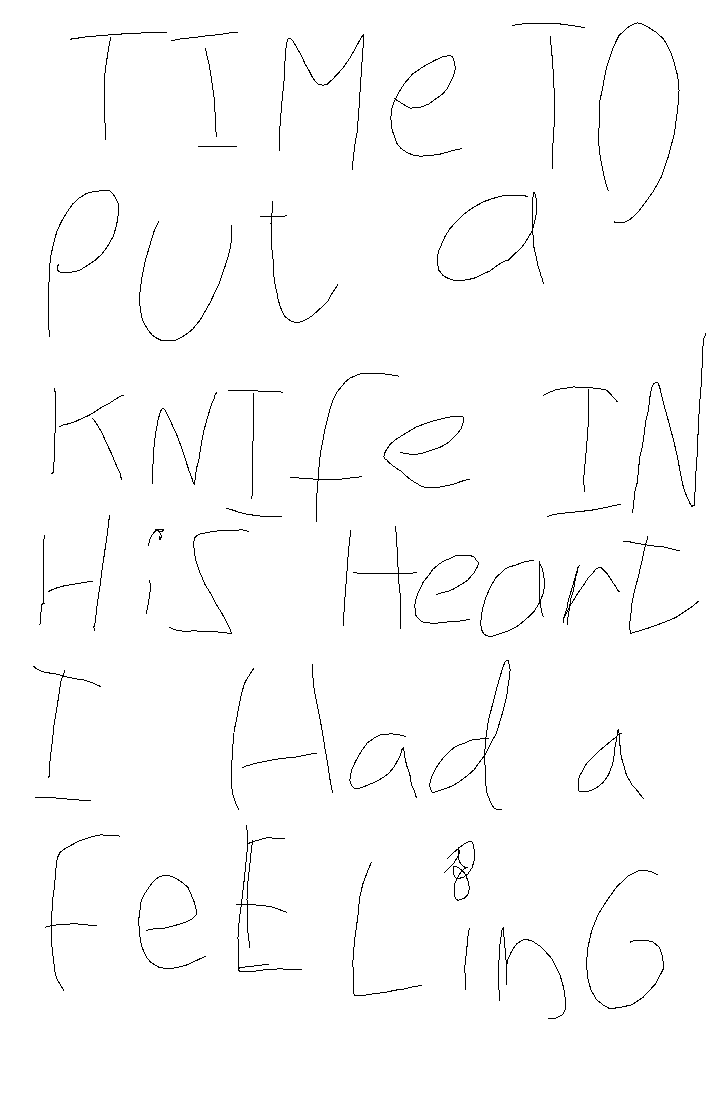 TIMe TO
PUt a
KNIfe IN
HiS Heart
I Had a
FeELinG